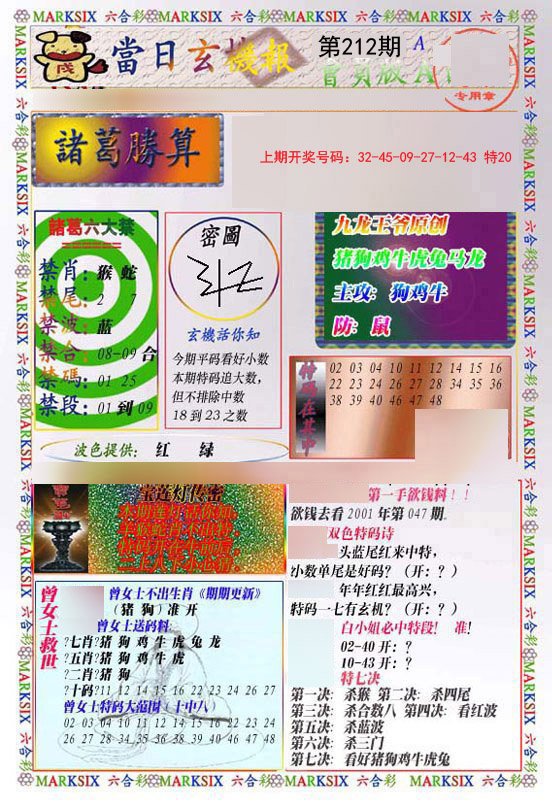 MARKSIX 六合彩 MARKSIX 六合彩 MARKSIX 六合彩 MARKSIX 六合彩 MARKSIX
當日玄機報
第212期 A
會員版A
专用章
諸葛勝算
上期开奖号码：32-45-09-27-12-43 特20
諸葛六大禁
禁肖：猴 蛇
禁尾：2 7
禁波：蓝
禁合：08-09 合
禁碼：01 25
禁段：01 到 09
密圖
玄機話你知
今期平码看好小数
本期特码追大数，
但不排除中数
18 到 23 之数
九龙王爷原创
猪狗鸡牛虎兔马龙
主攻：狗鸡牛
防：鼠
特码在其中
02 03 04 10 11 12 14 15 16
22 23 24 26 27 28 34 35 36
38 39 40 46 47 48
波色提供： 红 绿
宝莲灯传密
曾女士救世
曾女士不出生肖《期期更新》
（猪 狗）准 开
曾女士送码料
?七肖?猪 狗 鸡 牛 虎 兔 龙
?五肖?猪 狗 鸡 牛 虎
?二肖?猪 狗
?十码?11 12 14 15 16 22 23 24 26 27
曾女士特码大范围（十中八）
02 03 04 10 11 12 14 15 16 22 23 24
26 27 28 34 35 36 38 39 40 46 47 48
第一手欲钱料！！
欲钱去看 2001 年第 047 期.
双色特码诗
头蓝尾红来中特，
小数单尾是好码？（开：？）
年年红红最高兴，
特码一七有玄机？（开：？）
白小姐必中特段！ 准！
02-40 开：？
10-43 开：？
特七决
第一决：杀猴 第二决：杀四尾
第三决：杀合数八 第四决：看红波
第五决：杀蓝波
第六决：杀三门
第七决：看好猪狗鸡牛虎兔
MARKSIX 六合彩 MARKSIX 六合彩 MARKSIX 六合彩 MARKSIX 六合彩 MARKSIX